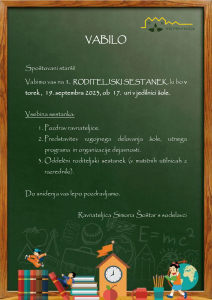 VABILO
Spoštovani starši!
Vabimo vas na 1. RODITELJSKI SESTANEK, ki bo v
torek, 19. septembra 2023, ob 17. uri v jedilnici šole.
Vsebina sestanka:
1. Pozdrav ravnateljice.
2. Predstavitev vzgojnega delovanja šole, učnega
programa in organizacije dejavnosti.
3. Oddelčni roditeljski sestanek (v matičnih učilnicah z
razredniki).
Do snidenja vas lepo pozdravljamo.
Ravnateljica Simona Šoštar s sodelavci